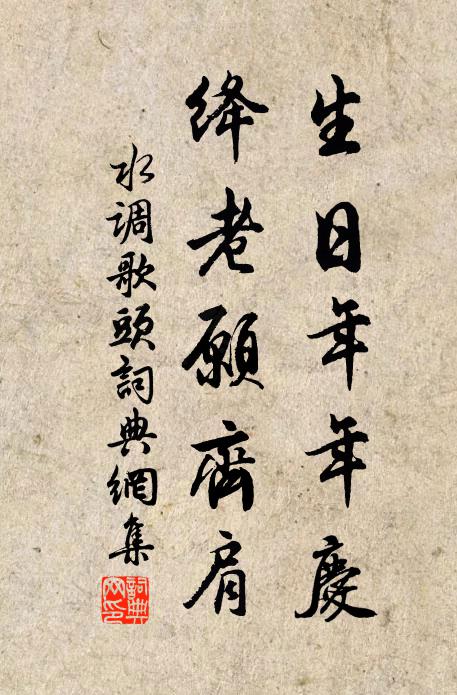 生日年年慶
绛老願齊肩
水调歌頭詞典網集
詞典
网印